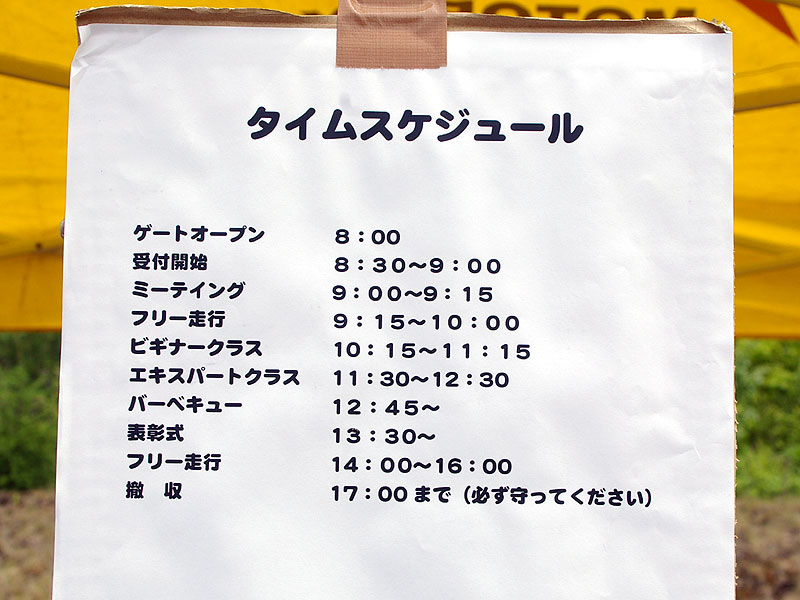 タイムスケジュール
ゲートオープン 8：00
受付開始 8：30〜9：00
ミーテイング 9：00〜9：15
フリー走行 9：15〜10：00
ビギナークラス 10：15〜11：15
エキスパートクラス 11：30〜12：30
バーベキュー 12：45〜
表彰式 13：30〜
フリー走行 14：00〜16：00
撤　収 17：00まで（必ず守ってください）